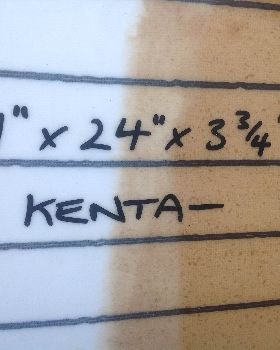 " x 24" x 3 3/4"
KENTA-